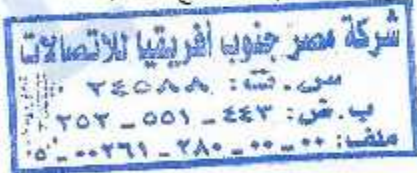 شركة مصر جنوب أفريقيا للاتصالات
س.ت: ٢٤٥٨٨
ب.ض: ٤٤٣ _ ٥٥١ _ ٢٥٢
ملف: ٠٠ _ ٠٠ _ ٢٨٠ _ ٠٠٢٦١ _ ٥